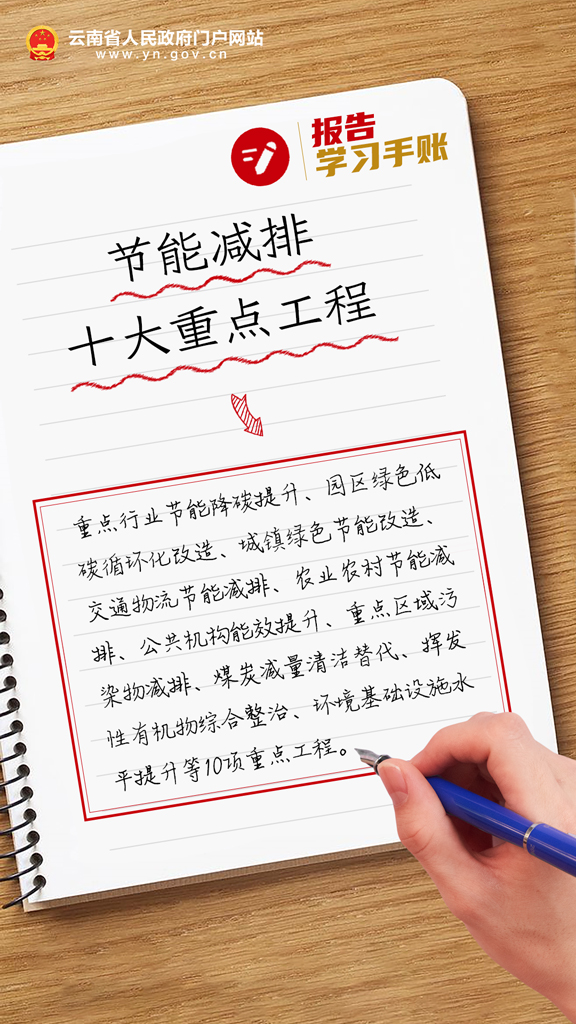 云南省人民政府门户网站
www.yn.gov.cn
报告
学习手账
节能减排
十大重点工程
重点行业节能降碳提升、园区绿色低
碳循环化改造、城镇绿色节能改造、
交通物流节能减排、农业农村节能减
排、公共机构能效提升、重点区域污
染物减排、煤炭减量清洁替代、挥发
性有机物综合整治、环境基础设施水
平提升等10项重点工程。